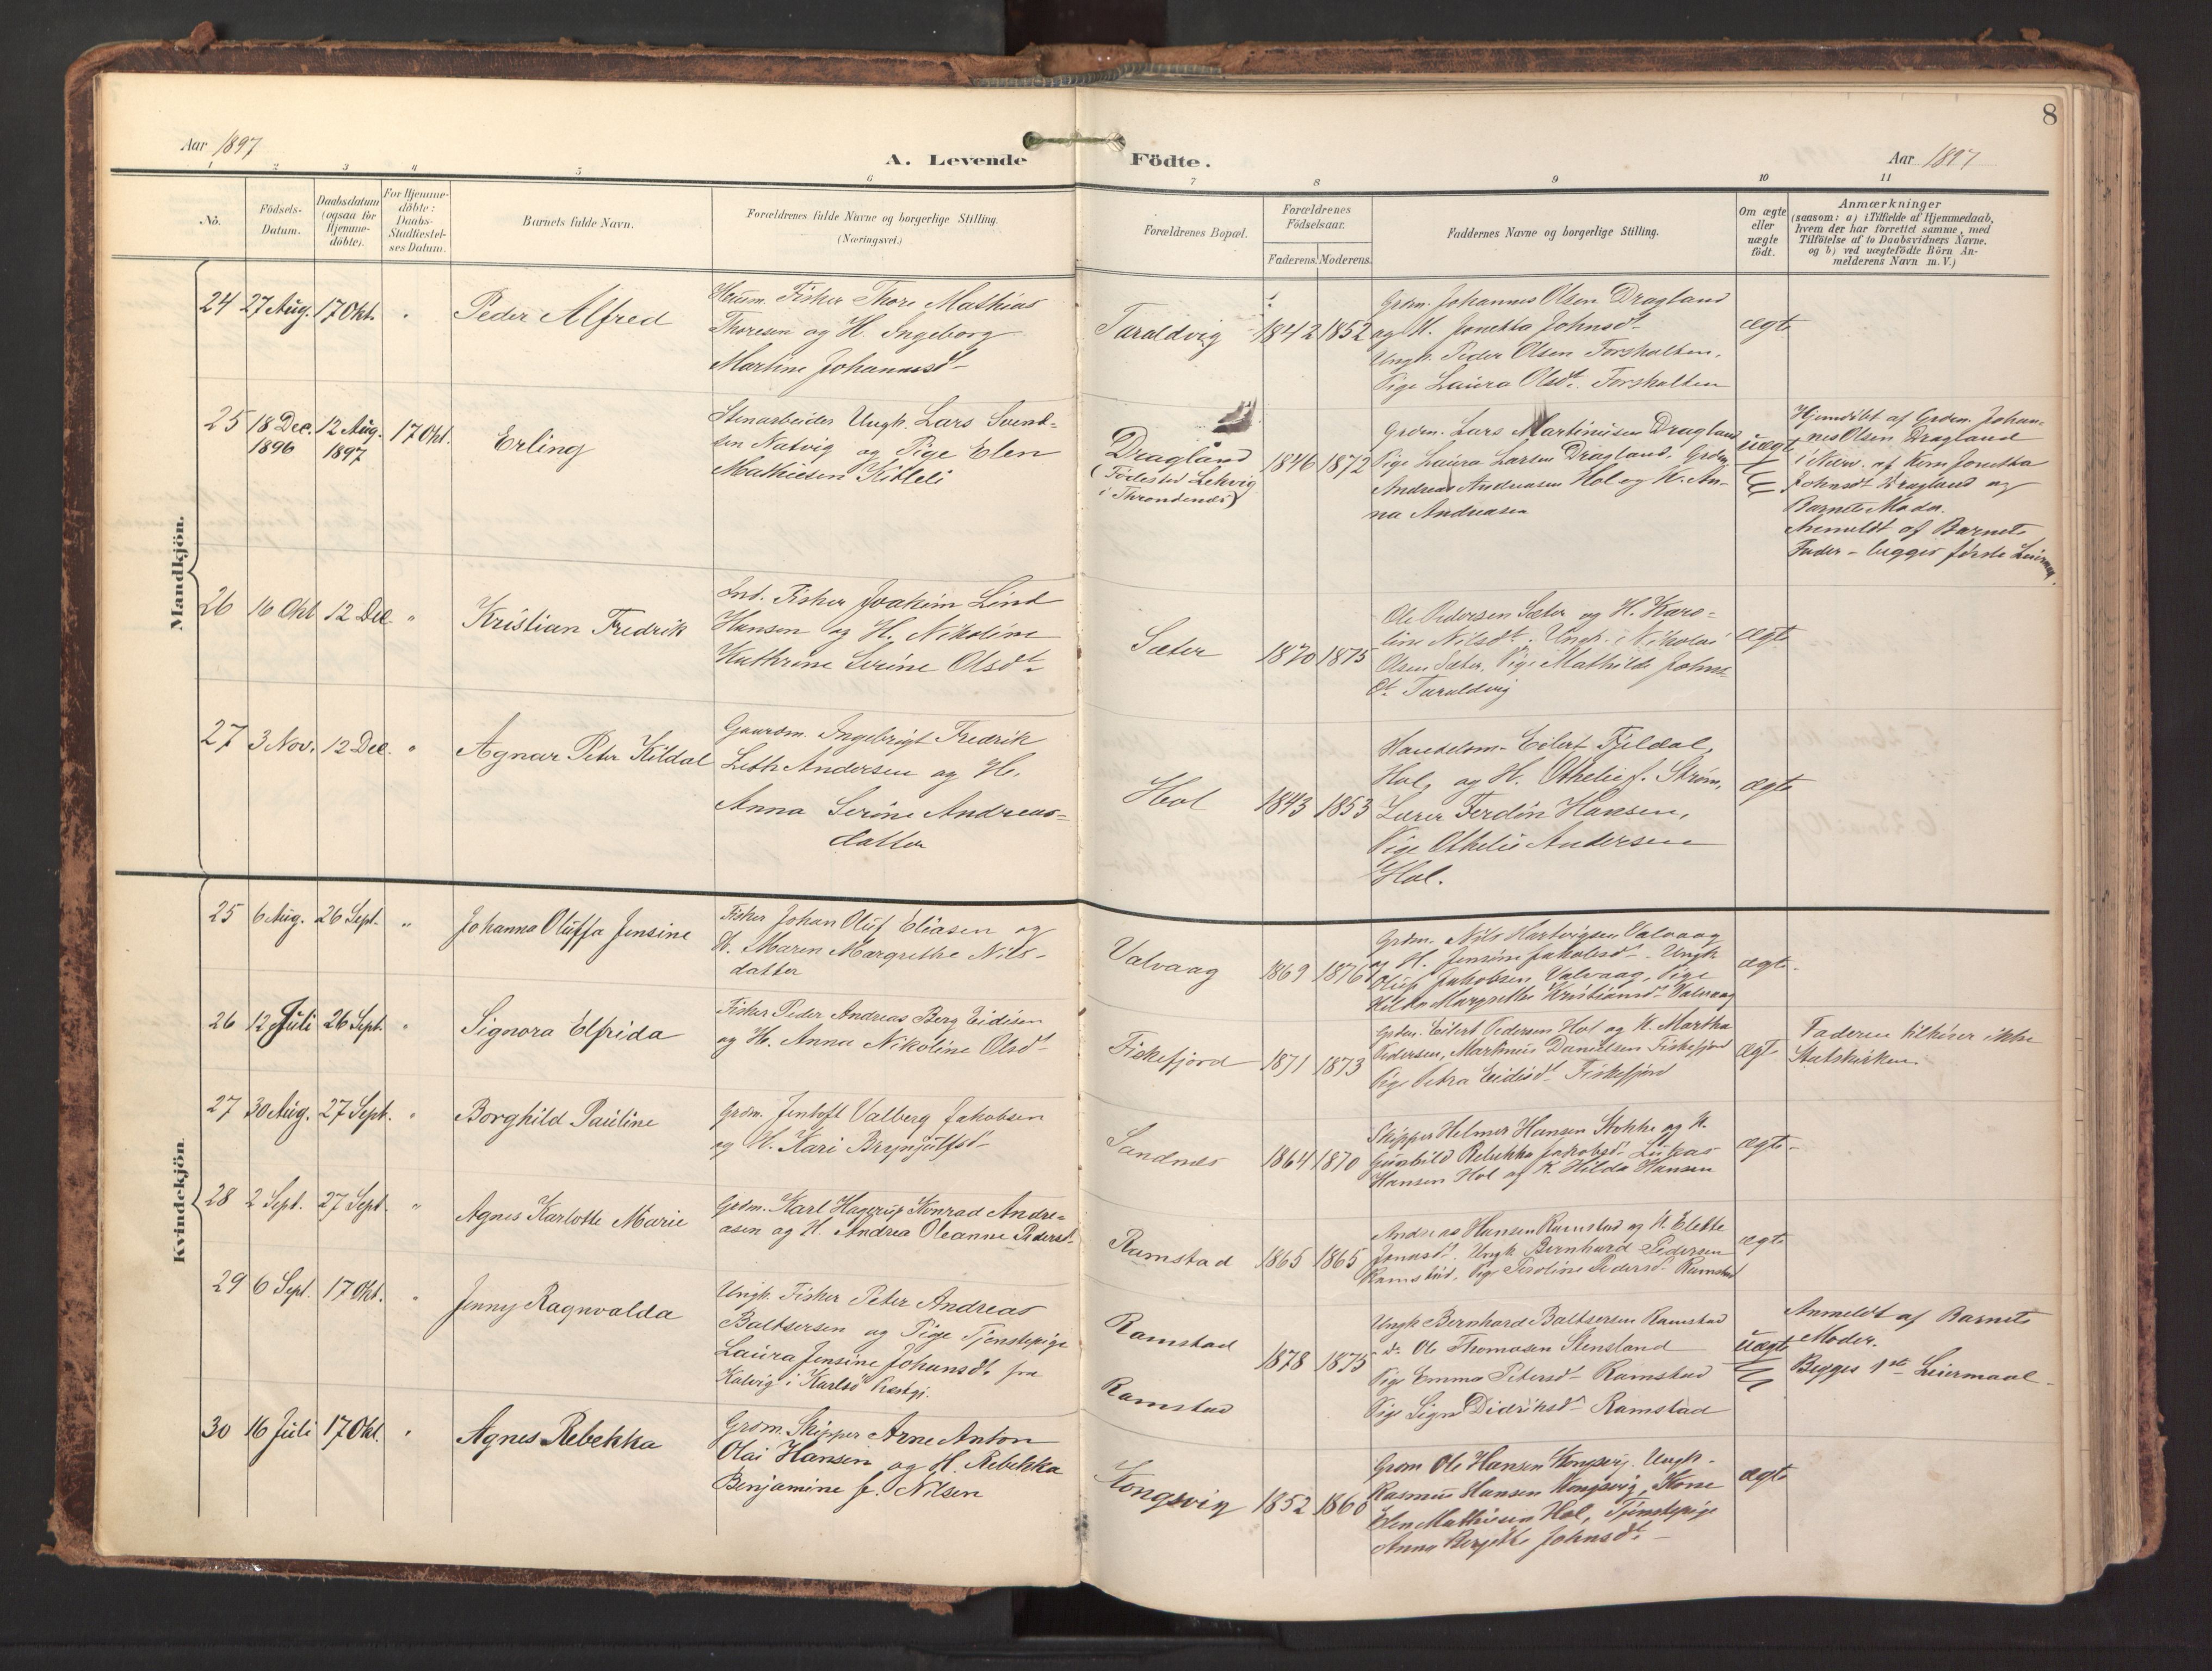 8
Aar 1897
A. Levende Födte.
Aar 1897
1 2 3 4 5 6 7 8 9 10 11
No.
Födsels-
Datum.
Daabsdatum
(ogsaa for
Hjemme-
döbte).
For Hjemme-
döbte:
Daabs-
Stadfæstel-
ses Datum.
Barnets fulde Navn.
Forældrenes fulde Navne og borgerlige Stilling.
(Næringsvei.)
Forældrenes Bopæl.
Forældrenes
Födselsaar.
Faderens. Moderens.
Faddernes Navne og borgerlige Stilling.
Om ægte
eller
uægte
födt.
Anmærkninger
(saasom: a) i Tilfælde af Hjemmedaab,
hvem der har forrettet samme, med
Tilföielse af to Daabsvidners Navne,
og b) ved uægtefödte Börn An-
melderens Navn m. V.)
Mandkjön.
24 27 Aug. 17 Okt. "
Peder Alfred
Husm. Fisker Thore Mathias
Thoresen og H. Ingeborg
Martine Johannesdt
Taraldvig
1842 1852
Grdm. Johannes Olsen Dragland
og H. Jonetta Johnsdt
Ungk. Peder Olsen Forshalten,
Pige Laura Olsdt. Forshalten
ægte
25 18 Dec. 12 Aug. 17 Okt.
1896 1897
Erling
Stenarbeider Ungk. Lars Svend-
sen Natvig og Pige Elen
Mathiesen Kitteli
Dragland
(Födested Lekvig
i Throndenes)
1846 1872
Grdm. Lars Martinusen Dragland
Pige Laura Larsen Dragland, Grdm.
Andreas Andreasen Hol og K. An-
na Andreasen
uægte
Hjemdöbt af Grdm. Johan-
nes Olsen Dragland
i Nærv. af Kone Jonetta
Johnsdt Dragland og
Barnets Moder.
Anmeldt af Barnets
Fader - begges förste Leierm.
26 16 Okt 12 Dec. "
Kristian Fredrik
Ind. Fisker Joakim Lind
Hansen og H. Nikoline
Kathrine Serine Olsdt
Sæter
1870 1875
Ole Pedersen Sæter og H. Karo-
line Nilsdt. Ungk. Nikolai
Olsen Sæter, Pige Mathilde Johns-
dt. Taraldvig
ægte
27 3 Nov. 12 Dec. "
Agnar Peter Kildal
Gaardm. Ingebrigt Fredrik
Leth Andersen og H.
Anna Serine Andreas-
datter
Hol
1843 1853
Handelsm. Eilert Fjeldal,
Hol, og H. Othelie f. Strøm,
Lærer Ferdin Hansen,
Pige Othelie Andersen
Hol.
ægte
Kvindekjön.
25 6 Aug. 26 Sept. "
Johanna Oluffa Jensine
Fisker Johan Oluf Eliasen og
H. Maren Margrethe Nils-
datter
Valvaag
1869 1876
Grdm. Nils Hartvigsen Valvaag
og H. Jensine Jakobsdt. Ungk
Oluf Jakobsen Valvaag, Pige
Hilda Margrethe Kristiansdt Valvaag
ægte
26 12 Juli 26 Sept. "
Signora Elfrida
Fisker Peder Andreas Berg Eidisen
og H. Anna Nikoline Olsdt
Fiskefjord
1871 1873
Grdm. Eilert Pedersen Hol og K. Martha
Pedersen, Martinus Danielsen Fiskefjord
Pige Petra Eidisdt Fiskefjord
ægt.
Faderen tilhörer ikke
Statskirken.
27 30 Aug. 27 Sept. "
Borghild Pauline
Grdm. Jentoft Valberg Jakobsen
og H. Kari Brynjulfsd
Sandnes
1864 1870
Skipper Helmer Hansen Stokke og K.
Gunhild Rebekka Jakobsd. Lukas
Hansen Hol og K. Hilda Hansen
ægte
28 2 Sept. 27 Sept. "
Agnes Karlotte Marie
Grdm. Karl Hagerup Konrad Andre-
asen og H. Andrea Oleanne Pedersdt
Ramstad
1865 1865
Andreas Hansen Ramstad og K. Elekte
Jonasdt. Ungk. Bernhard Pedersen
Ramstad, Pige Peroline Pedersdt Ramstad
ægte
29 6 Sept. 17 Okt. "
Jenny Ragnvalda
Ungk. Fisker Peter Andreas
Baltsersen og Pige Tjenstepige
Laura Jensine Johansdt. fra
Kalvig i Karlsö Præstgj.
Ramstad
Ramstad
1878 1875
Ungk Bernhard Baltsersen Ramstad
d. Ole Thomasen Stensland
Pige Emma Petersdt Ramstad
Pige Signe Didriksdt Ramstad
uægte
Anmeldt af Barnets
Moder.
Begges 1ste Leiermaal
30 16 Juli 17 Okt. "
Agnes Rebekka
Grdm. Skipper Arne Anton
Olai Hansen og H. Rebekka
Benjamine f. Nilsen
Kongsvig
1852 1860
Grdm Ole Hansen Kongsvig. Ungk.
Rasmus Hansen Kongsvig, Kone
Elen Mathiesen Hol, Tjenstepige
Anna Bergitte Johnsdt
ægte